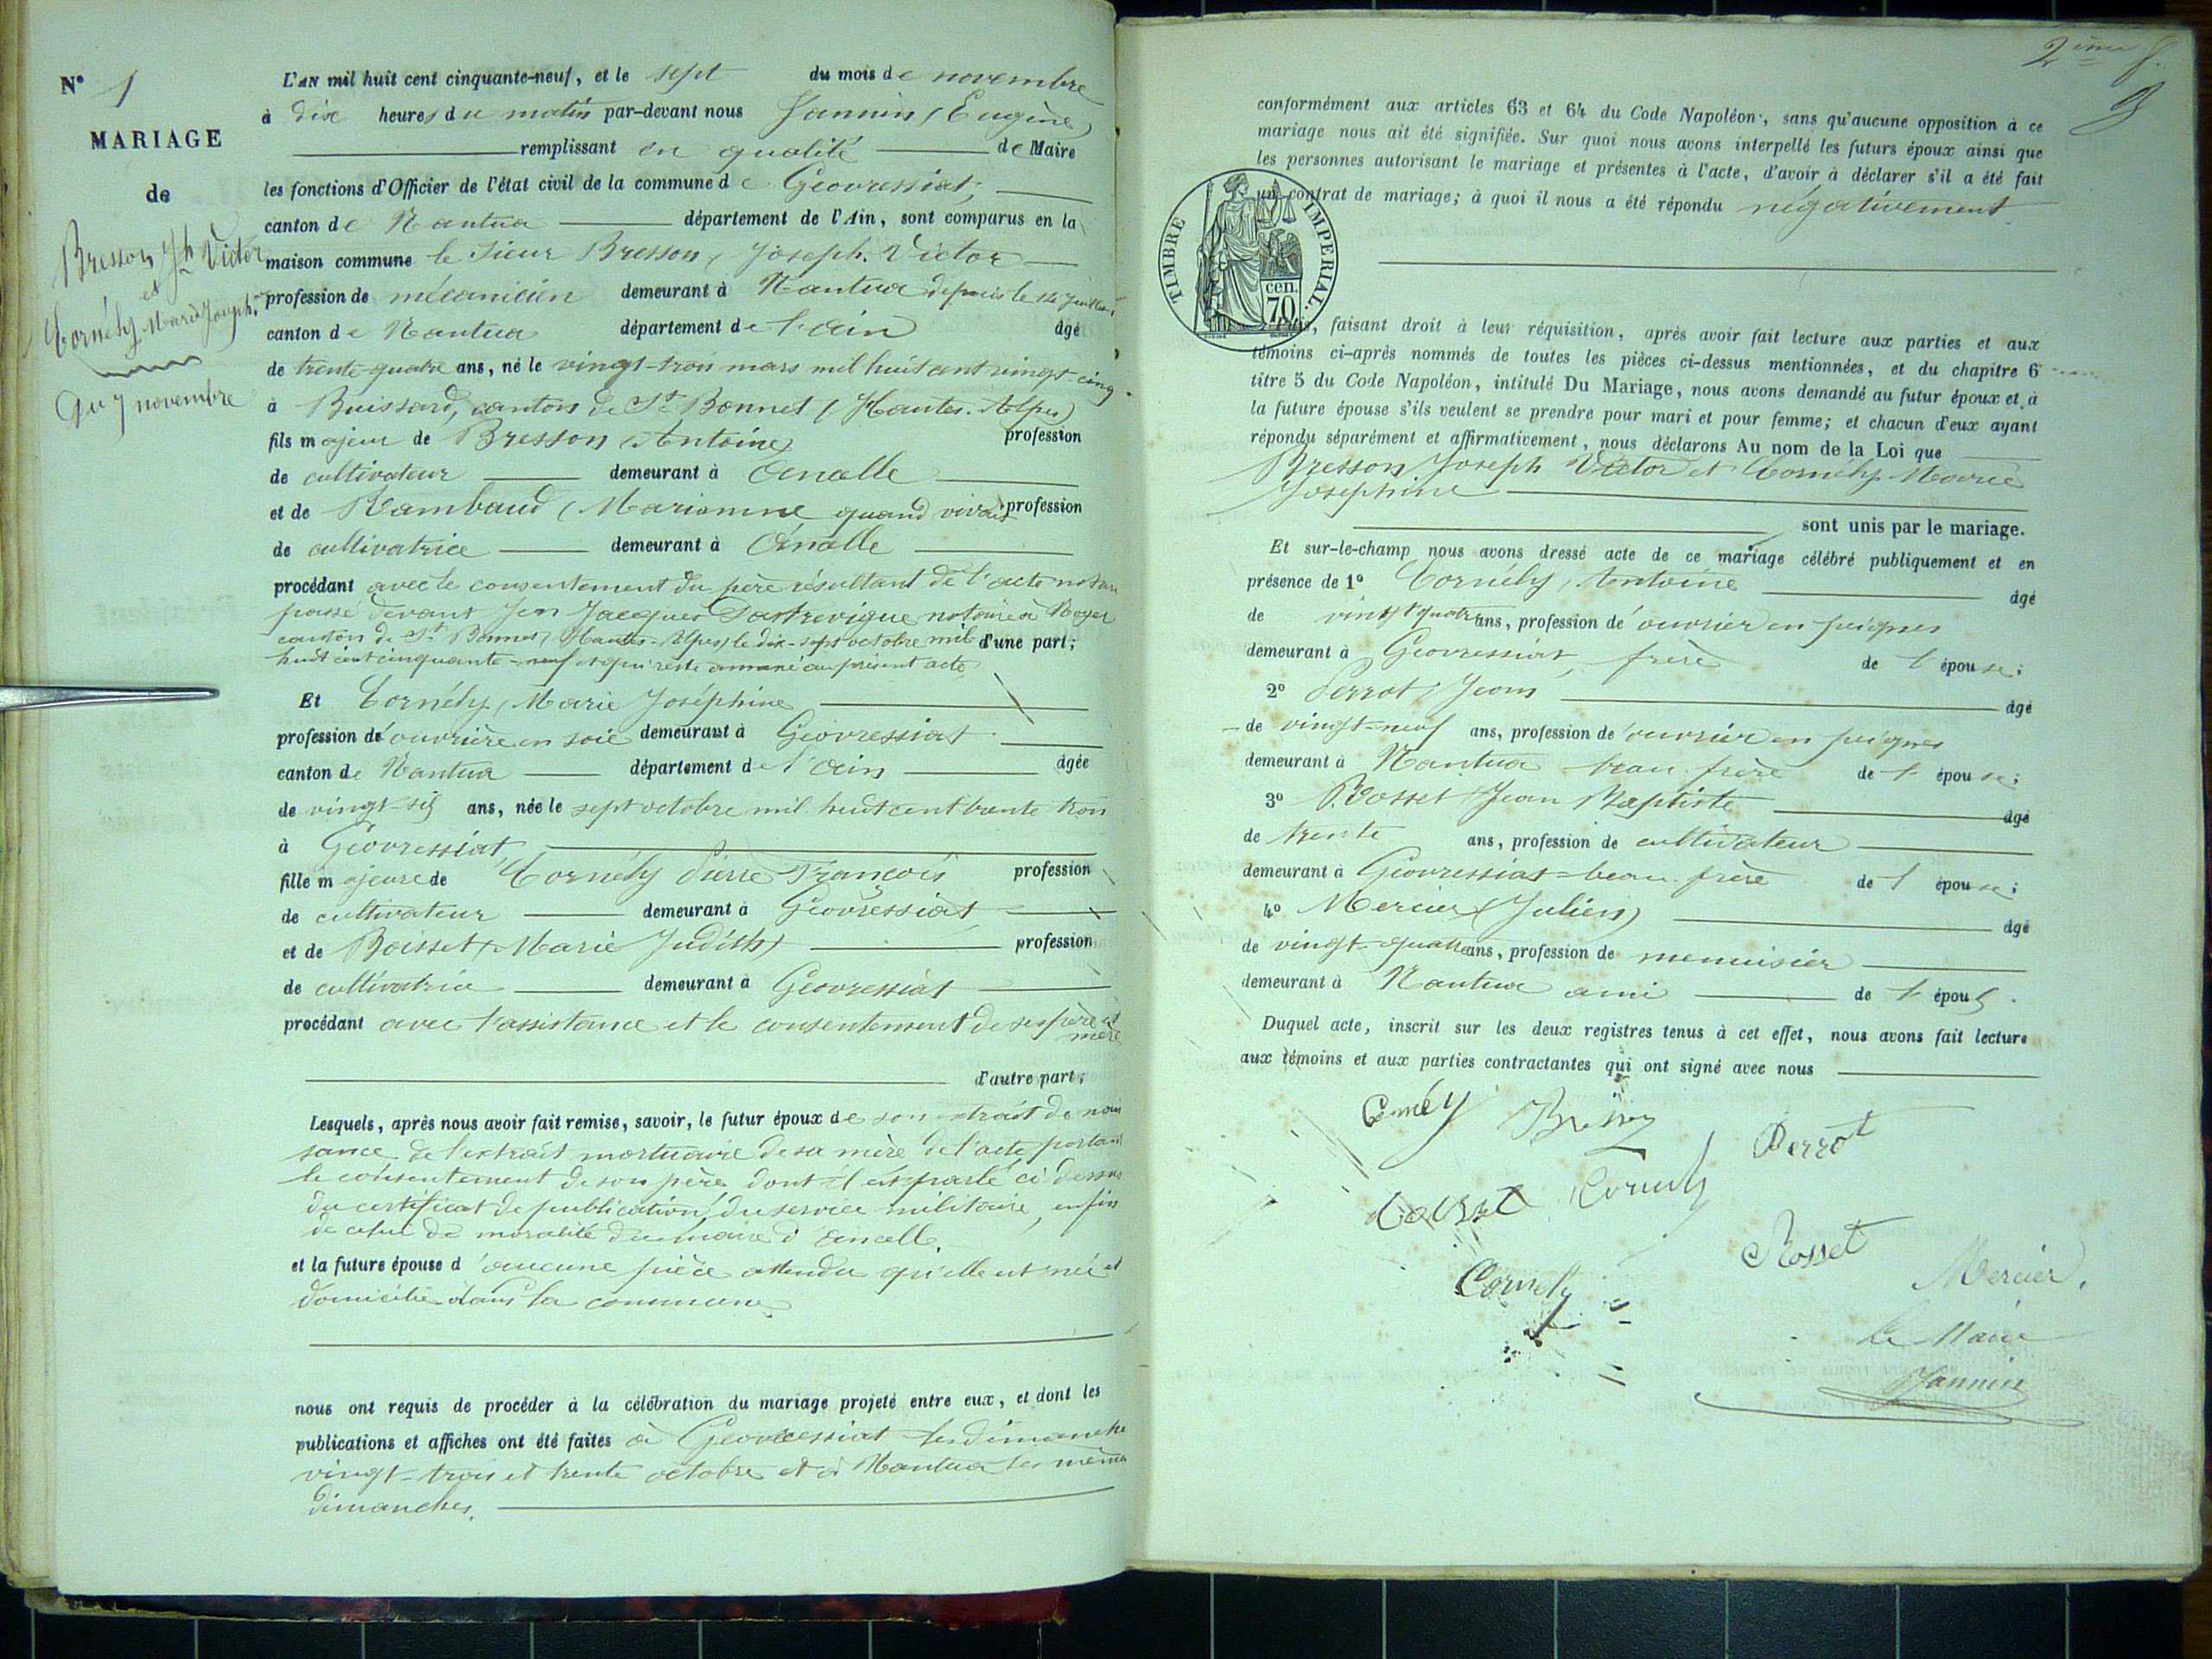 N° 1
MARIAGE
de
Bresson Jh Victor
et
Cornély Marie Joseph.
Du 7 novembre
L'AN mil huit cent cinquante-neuf, et le sept du mois de novembre
à dix heures du matin par-devant nous Jannin (Eugène)
remplissant en qualité de Maire
les fonctions d'Officier de l'état civil de la commune de Géovressiat,
canton de Nantua département de l'Ain, sont comparus en la
maison commune le Sieur Bresson, Joseph. Victor
profession de mécanicien demeurant à Nantua depuis le
canton de Nantua département de l'ain âgé
de trente-quatre ans, né le vingt-trois mars mil huit cent vingt-cinq
à Buissard, canton de St Bonnet (Hautes-Alpes)
fils majeur de Bresson (Antoine) profession
de cultivateur demeurant à
et de Rambaud (Marianne quand vivait profession
de cultivatrice demeurant à
procédant avec le consentement du père résultant de l'acte
passé devant Jacques notaire à
canton de St Bonnet (Hautes-Alpes) le dix-sept octobre mil d'une part;
huit cent cinquante-neuf et qui reste annexé au présent acte
Et Cornély, Marie Joséphine
profession d'ouvrière en soie demeurant à Géovressiat
canton de Nantua département de l'ain âgée
de vingt-six ans, née le sept octobre mil huit cent trente trois
à Géovressiat
fille majeure de Cornély Pierre François profession
de cultivateur demeurant à Géovressiat
et de Boisset (Marie Judith) profession
de cultivatrice demeurant à Géovressiat
procédant avec l'assistance et le consentement de ses père et
mère
d'autre part;
Lesquels, après nous avoir fait remise, savoir, le futur époux de son extrait de nais
sance de l'extrait mortuaire de sa mère de l'acte portant
le consentement de son père dont il est parlé ci dessus
du certificat de publication, du service militaire, enfin
de celui de moralité du maire d'
et la future épouse d'aucune pièce attendu qu'elle est née et
domiciliée dans la commune
nous ont requis de procéder à la célébration du mariage projeté entre eux, et dont les
publications et affiches ont été faites à Géovressiat les dimanche
vingt-trois et trente octobre et à Nantua les mêmes
dimanches.
2ème f.
conformément aux articles 63 et 64 du Code Napoléon, sans qu'aucune opposition à ce
mariage nous ait été signifiée. Sur quoi nous avons interpellé les futurs époux ainsi que
les personnes autorisant le mariage et présentes à l'acte, d'avoir à déclarer s'il a été fait
un contrat de mariage; à quoi il nous a été répondu négativement
TIMBRE IMPERIAL.
cen.
70
Puis, faisant droit à leur réquisition, après avoir fait lecture aux parties et aux
témoins ci-après nommés de toutes les pièces ci-dessus mentionnées, et du chapitre 6
titre 5 du Code Napoléon, intitulé Du Mariage, nous avons demandé au futur époux et à
la future épouse s'ils veulent se prendre pour mari et pour femme; et chacun d'eux ayant
répondu séparément et affirmativement, nous déclarons Au nom de la Loi que
Bresson Joseph Victor et Cornély Marie
Joséphine
sont unis par le mariage.
Et sur-le-champ nous avons dressé acte de ce mariage célébré publiquement et en
présence de 1° Cornély, Antoine âgé
de vingt quatre ans, profession d'ouvrier en peignes
demeurant à Géovressiat, frère de l'épouse;
2° Perrot, Jean âgé
de vingt-neuf ans, profession d'ouvrier en peignes
demeurant à Nantua beau-frère de l'épouse;
3° Rosset Jean Baptiste âgé
de trente ans, profession de cultivateur
demeurant à Géovressiat beau-frère de l'épouse;
4° Mercier (Julien) âgé
de vingt-quatre ans, profession de menuisier
demeurant à Nantua ami de l'époux.
Duquel acte, inscrit sur les deux registres tenus à cet effet, nous avons fait lecture
aux témoins et aux parties contractantes qui ont signé avec nous
Cornély Bresson
Perrot
Cornely
Rosset
Cornely
Mercier.
Le Maire
Jannin